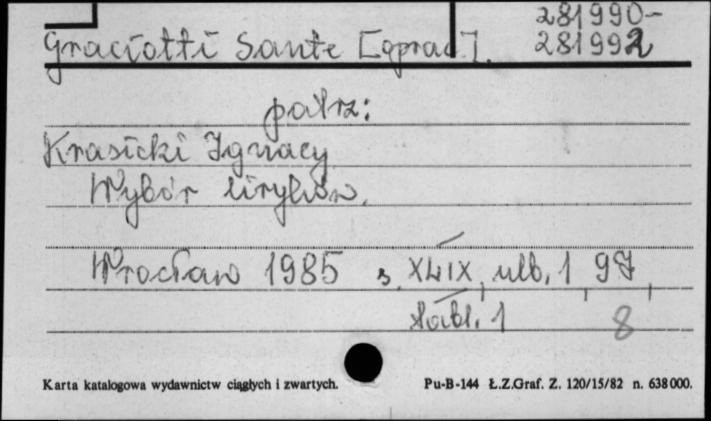 281990-
Graciotti Sante [oprac]. 281992
patrz:
Krasicki Ignacy
Wybór liryków.
Wrocław 1985 s. XLIX, nlb. 1, 97,
tabl. 1
8
Karta katalogowa wydawnictw ciągłych i zwartych. Pu-B-144 Ł.Z.Graf. Z. 120/15/82 n. 638000.